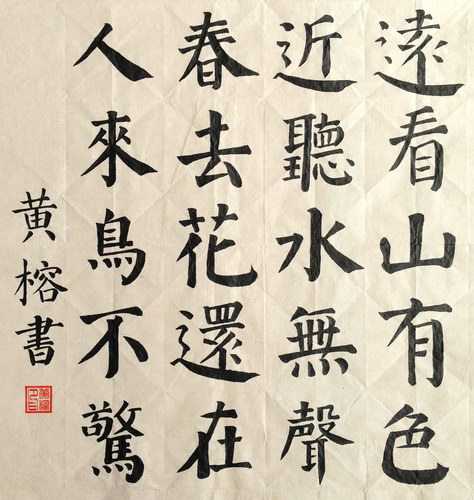 遠看山有色
近聽水無聲
春去花還在
人來鳥不驚
黄榕書